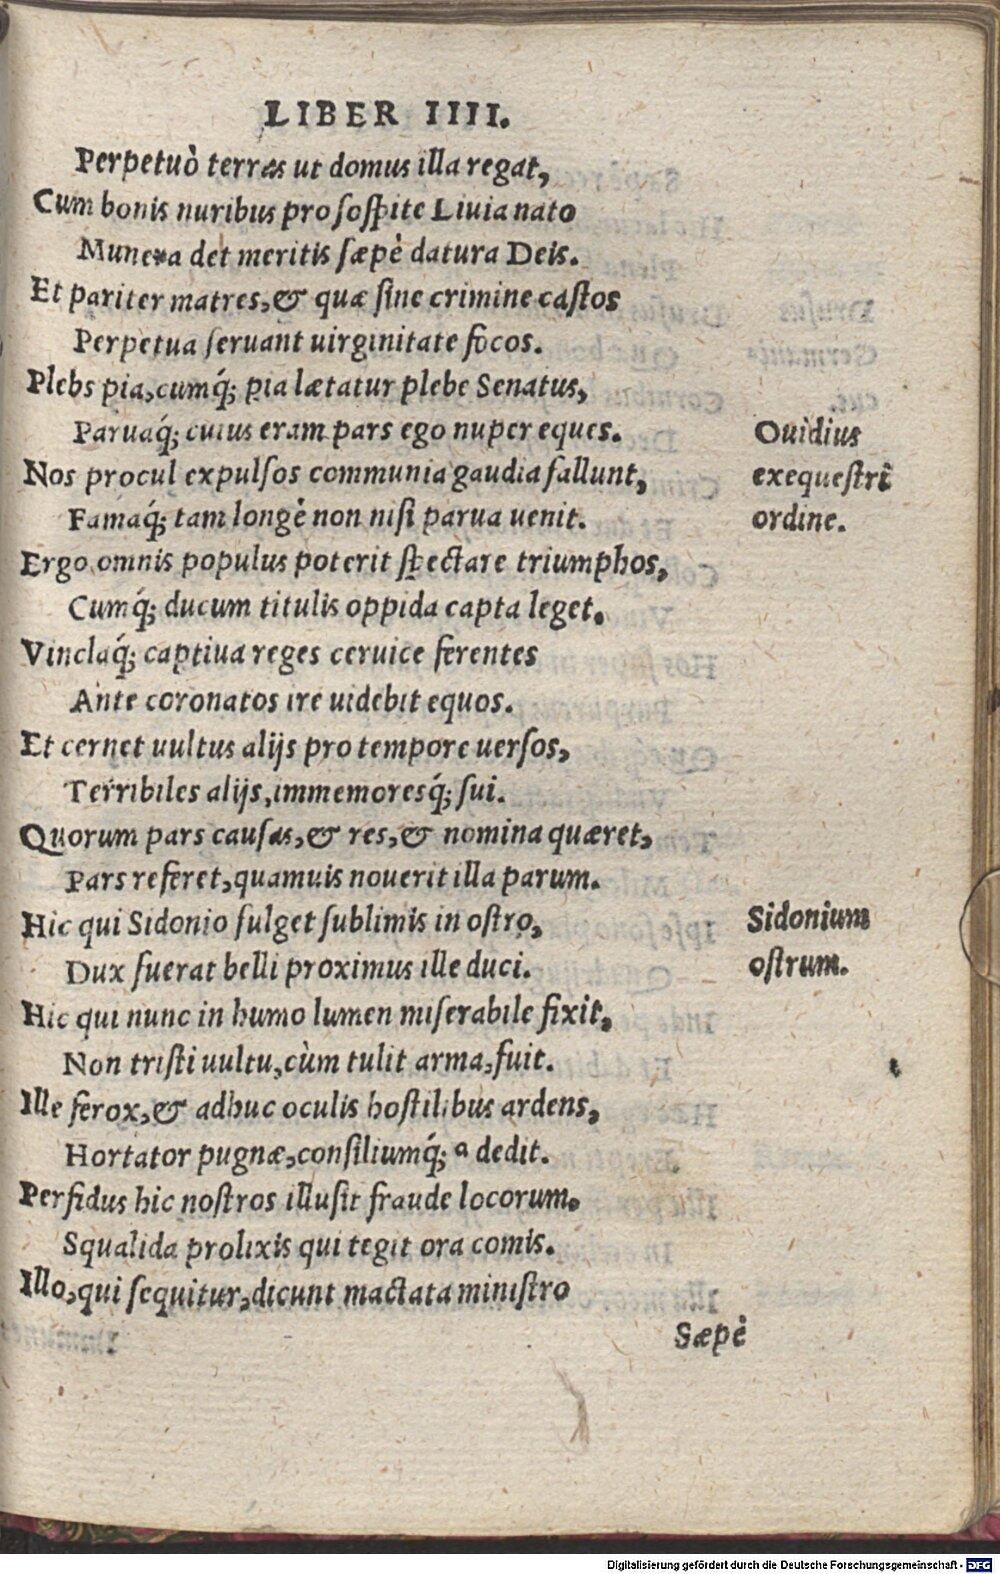 LIBER IIII.
Perpetuò terras ut domus illa regat,
Cum bonis nuribus pro sospite Liuia nato
Munera det meritis sæpè datura Deis.
Et pariter matres, & quæ sine crimine castos
Perpetua seruant uirginitate focos.
Plebs pia, cumq́; pia lætatur plebe Senatus,
Paruaq́; cuius eram pars ego nuper eques.
Ouidius
Nos procul expulsos communia gaudia fallunt,
exequestri
Famaq́; tam longè non nisi parua uenit.
ordine.
Ergo omnis populus poterit spectare triumphos,
Cumq́; ducum titulis oppida capta leget.
Vinclaq́; captiua reges ceruice ferentes
Ante coronatos ire uidebit equos.
Et cernet uultus alijs pro tempore uersos,
Terribiles alijs, immemoresq́; sui.
Quorum pars causas, & res, & nomina quæret,
Pars referet, quamuis nouerit illa parum.
Hic qui Sidonio fulget sublimis in ostro,
Sidonium
Dux fuerat belli proximus ille duci.
ostrum.
Hic qui nunc in humo lumen miserabile fixit,
Non tristi uultu, cùm tulit arma, fuit.
Ille ferox, & adhuc oculis hostilibus ardens,
Hortator pugnæ, consiliumq́; a dedit.
Perfidus hic nostros illusit fraude locorum.
Squalida prolixis qui tegit ora comis.
Illo, qui sequitur, dicunt mactata ministro
Sæpè
Digitalisierung gefördert durch die Deutsche Forschungsgemeinschaft - DFG